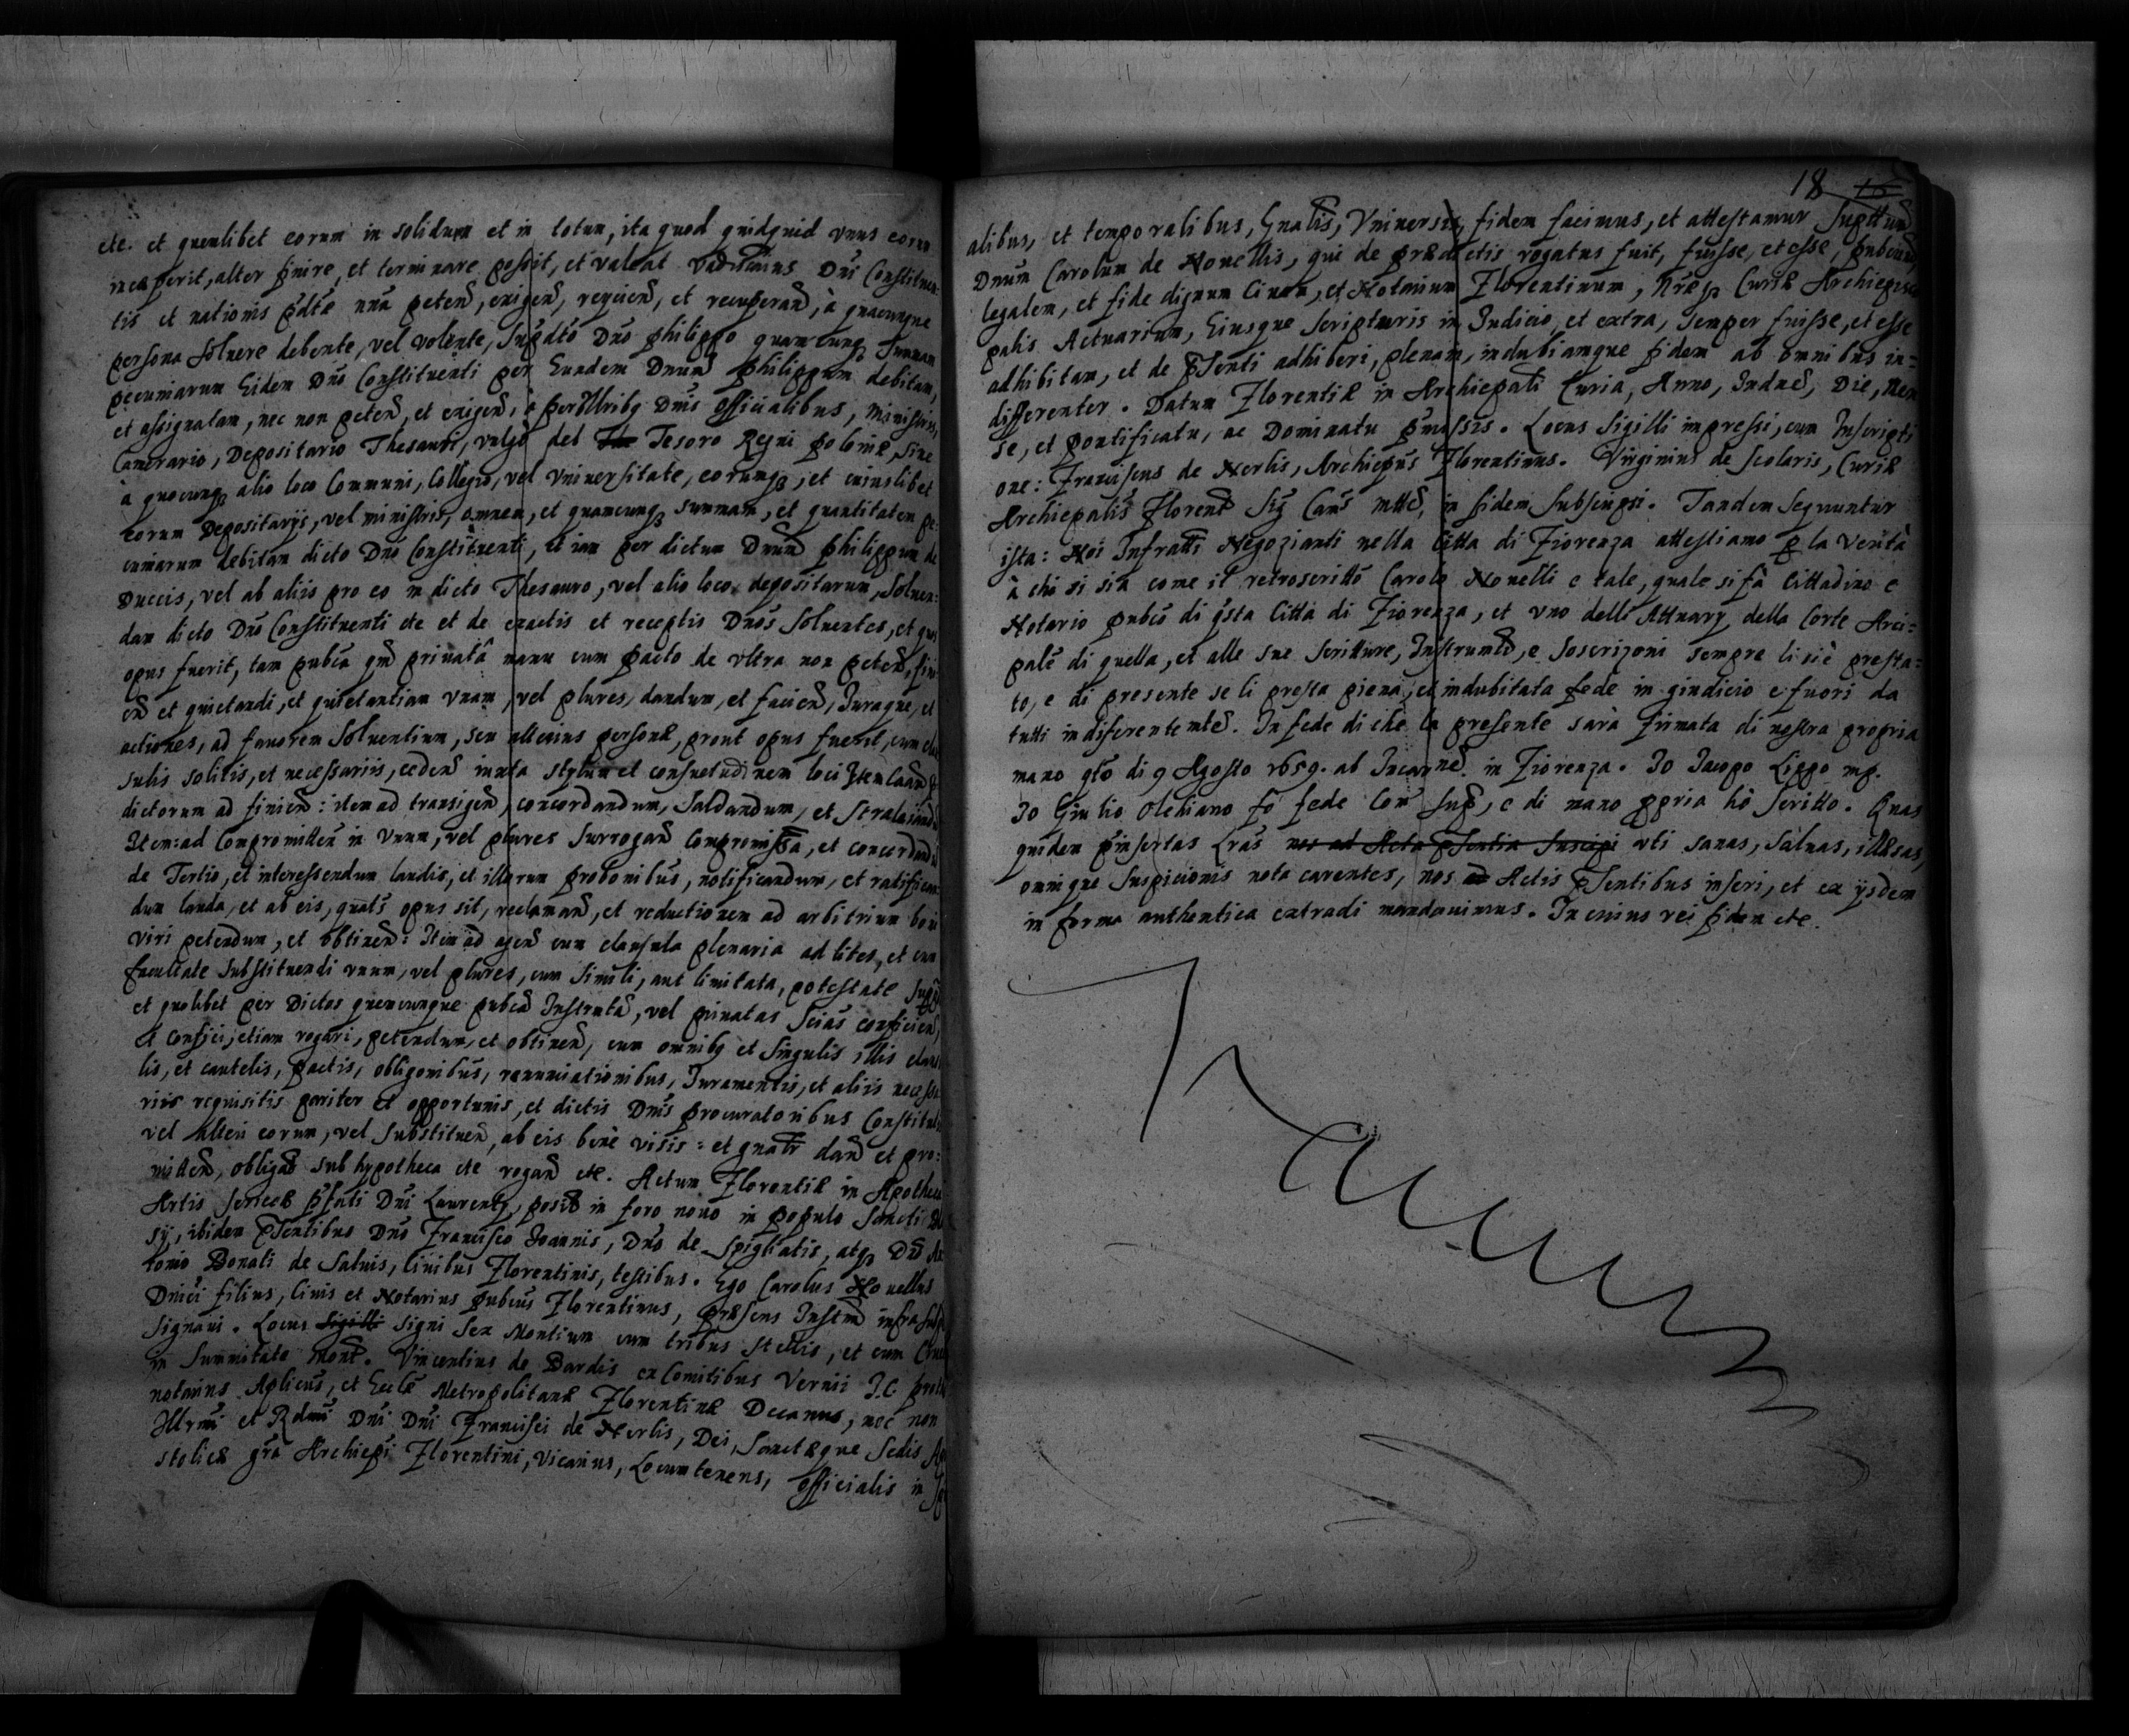 etc. et quemlibet eorum in solidum et in totum, ita quod quidquid vnus eorum
inceperit, alter finire, et terminare possit, et valeat Dñi Constituen:
tis et nationis pdte petend, exigend, et recuperand, à quacunque
persona soluere debente, vel volente, Supdto Dño Philippo quamcunq Summam
pecuniarum Eidem Dño Constituenti per Eundem Dnum Philippum debitam,
et assignatam, nec non petend, et exigend, Dnis Officialibus, Ministris,
Camerario, Depositario Thesauri, vulgò del Tesoro Regni Poloniæ, Sine
à quocunq alio loco Communi, Collegio, vel Vniuersitate, eorumq, et cuiuslibet
eorum Depositarijs, vel ministris, omnem, et quamcunq summam, et quantitatem pe
cuniarum debitam dicto Dno Constituenti, et iam per dictum Dnum Philippum de
Duccis, vel ab aliis pro eo in dicto Thesauro, vel alio loco depositarum, Soluen:
dam dicto Dno Constituenti etc et de exactis et receptis Dnos Soluentes, et quos
opus fuerit, tam pubca qm priuata manu cum pacto de vltra non petend, fin
end et quietandi, et quietantiam vnam, vel plures, dandum, et faciend, Iuraque, et
actiones, ad fauorem Soluentium, seu alterius personæ, prout opus fuerit, cum clau
sulis solitis, et necessariis, cedend iuxta stylum et consuetudinem loci
dictorum ad finiend: item ad transigend, concordandum, Saldandum, et Stralciand
Item: ad Compromitten in Vnum, vel plures Surrogand Compromissa, et concordand
de Tertio, et interessendum laudis, et illarum prolonibus, notificandum, et ratifican
dum lauda, et ab eis, quats opus sit, reclamand, et reductionem ad arbitrium boni
viri petendum, et obtinend: Item ad agend cum clausula plenaria ad lites, et cum
facultate Substituendi vnum, vel plures, cum simili, aut limitata, potestate
et quolibet per Dictos quemcunque pubca Instrumta, vel priuatas Scias conficiend,
et confici, etiam rogari, petendum, et obtinend, cum omnibq et Singulis illis clausu
lis, et cautelis, pactis, obligonibus, renunciationibus, Iuramentis, et aliis necessa
riis requisitis pariter et opportunis, et dictis Dnis Procuratoribus Constitutis
vel Alteri eorum, vel Substituend, ab eis bene visis: et gnatr dand et pro:
mittend, obligand sub hypotheca etc rogand etc. Actum Florentiæ in Apotheca
Artis Sericeæ Dni Laurentij, posita in foro nouo in populo Sancti
sij, ibidem pñtibus Dno Francisco Ioannis, Dno de Spigliatis, atq Dno An
tonio Donati de Saluis, Ciuibus Florentinis, testibus. Ego Carolus Nouellus
Dnici filius, Ciuis et Notarius pubcus Florentinus, præsens Instm infrascr
Signaui. Locus Sigilli signi Sex Montium cum tribus Stellis, et cum Cruce
in Summitate mont. Vincentius de Bardis ex Comitibus Vernii I.C. Proto
notarius Aplicus, et Eccle Metropolitanæ Florentinæ Decanus, nec non
Illrmi et Rdmi Dni Dni Francisci de Nerlis, Dei, Sanctæque Sedis Apo
stolicæ gra Archiepi Florentini, Vicarius, Locumtenens, Officialis in
18 16
alibus, et temporalibus, Gnalis, Vniuersis, fidem facimus, et attestamur
Dnum Carolum de Nouellis, qui de prædictis rogatus fuit, fuisse, et esse, pubcum
legalem, et fide dignum Ciuem, et Notarium Florentinum, Curiæ Archiepisco
palis Actuarium, Eiusque Scripturis in Iudicio, et extra, semper fuisse, et esse
adhibitam, et de pñti adhiberi, plenam, indubiamque fidem ab omnibus in=
differenter. Datum Florentiæ in Archiepali Curia, Anno, Indne, Die, Men
se, et Pontificatu, ac Dominatu pmissis. Locus Sigilli impressi, cum Inscripti
one: Franciscus de Nerlis, Archiepus Florentinus. Virginius de Scolaris, Curiæ
Archiepalis Florent in fidem Subscripsi. Tandem Sequuntur
ista: Noi Infratti Negozianti nella Città di Fiorenza attestiamo p la verità
à chi si sia come il retroscritto Carolo Nouelli e tale, quale si fà Cittadino e
Notario pubco di qsta Città di Fiorenza, et vno delli Attuary della Corte Arci=
pale di quella, et alle sue Scritture, Instrumti, e Soscrizoni sempre li si è presta=
to, e di presente se li presta piena, et indubitata fede in giudicio e fuori da
tutti indiferentemte. In fede di che la presente sarà firmata di nostra propria
mano qto di 9 Agosto 1659. ab Incarne. in Fiorenza. Io Iacopo Lippo mp.
Io Giulio fò fede Com sup, e di mano ppria hò Scritto. Quas
quidem pinsertas Lras nos ad Acta pñtia Suscipi vti sanas, saluas, illæsas,
omnique Suspicionis nota carentes, nos ad Actis pñtibus inseri, et ex ijsdem
in forma authentica extradi mandauimus. In cuius rei fidem etc.